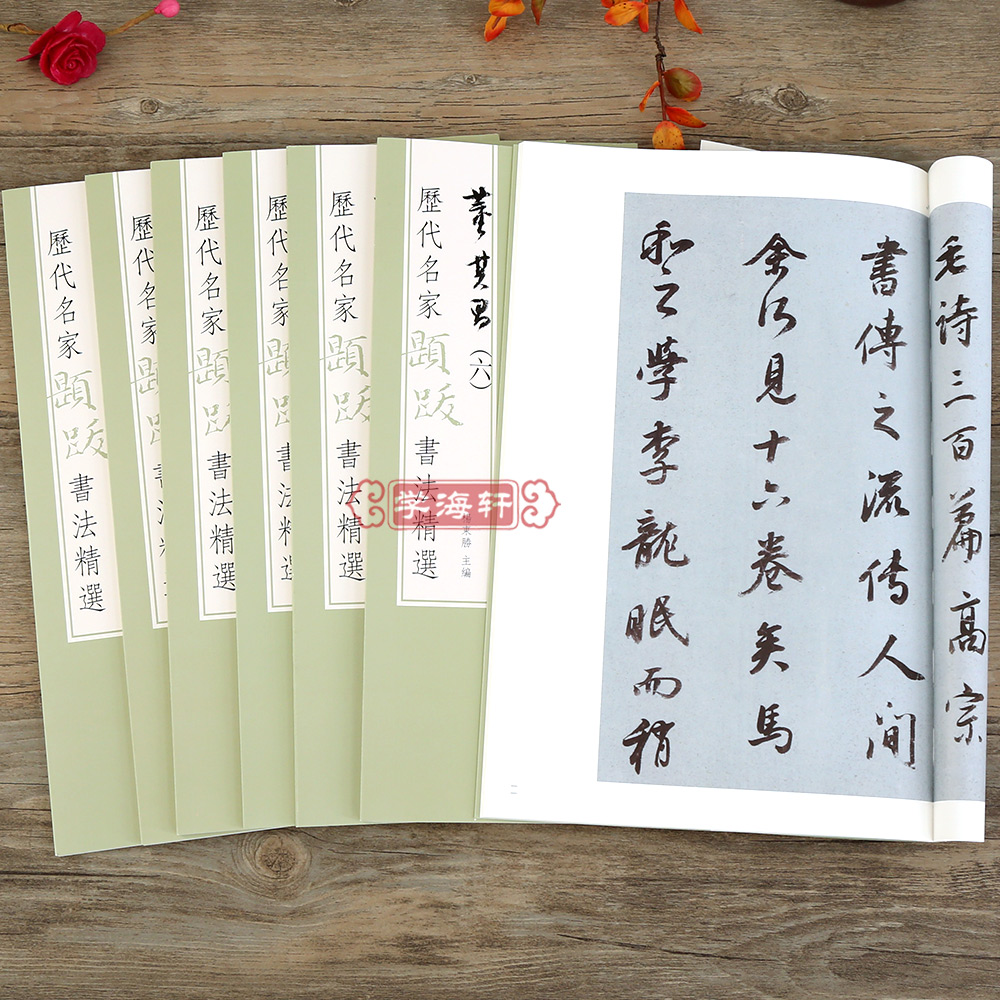 歷代名家題跋書法精選
歷代名家題跋書法精
歷代名家題跋書法精選
歷代名家題跋書法精選
歷代名家題跋書法精選
歷代名家題跋書法精選
董其昌（六）
東勝 主編
学海轩
毛詩三百篇高宗
書傳之流传人間
余所見十六卷矣馬
和之學李龍眠而稍